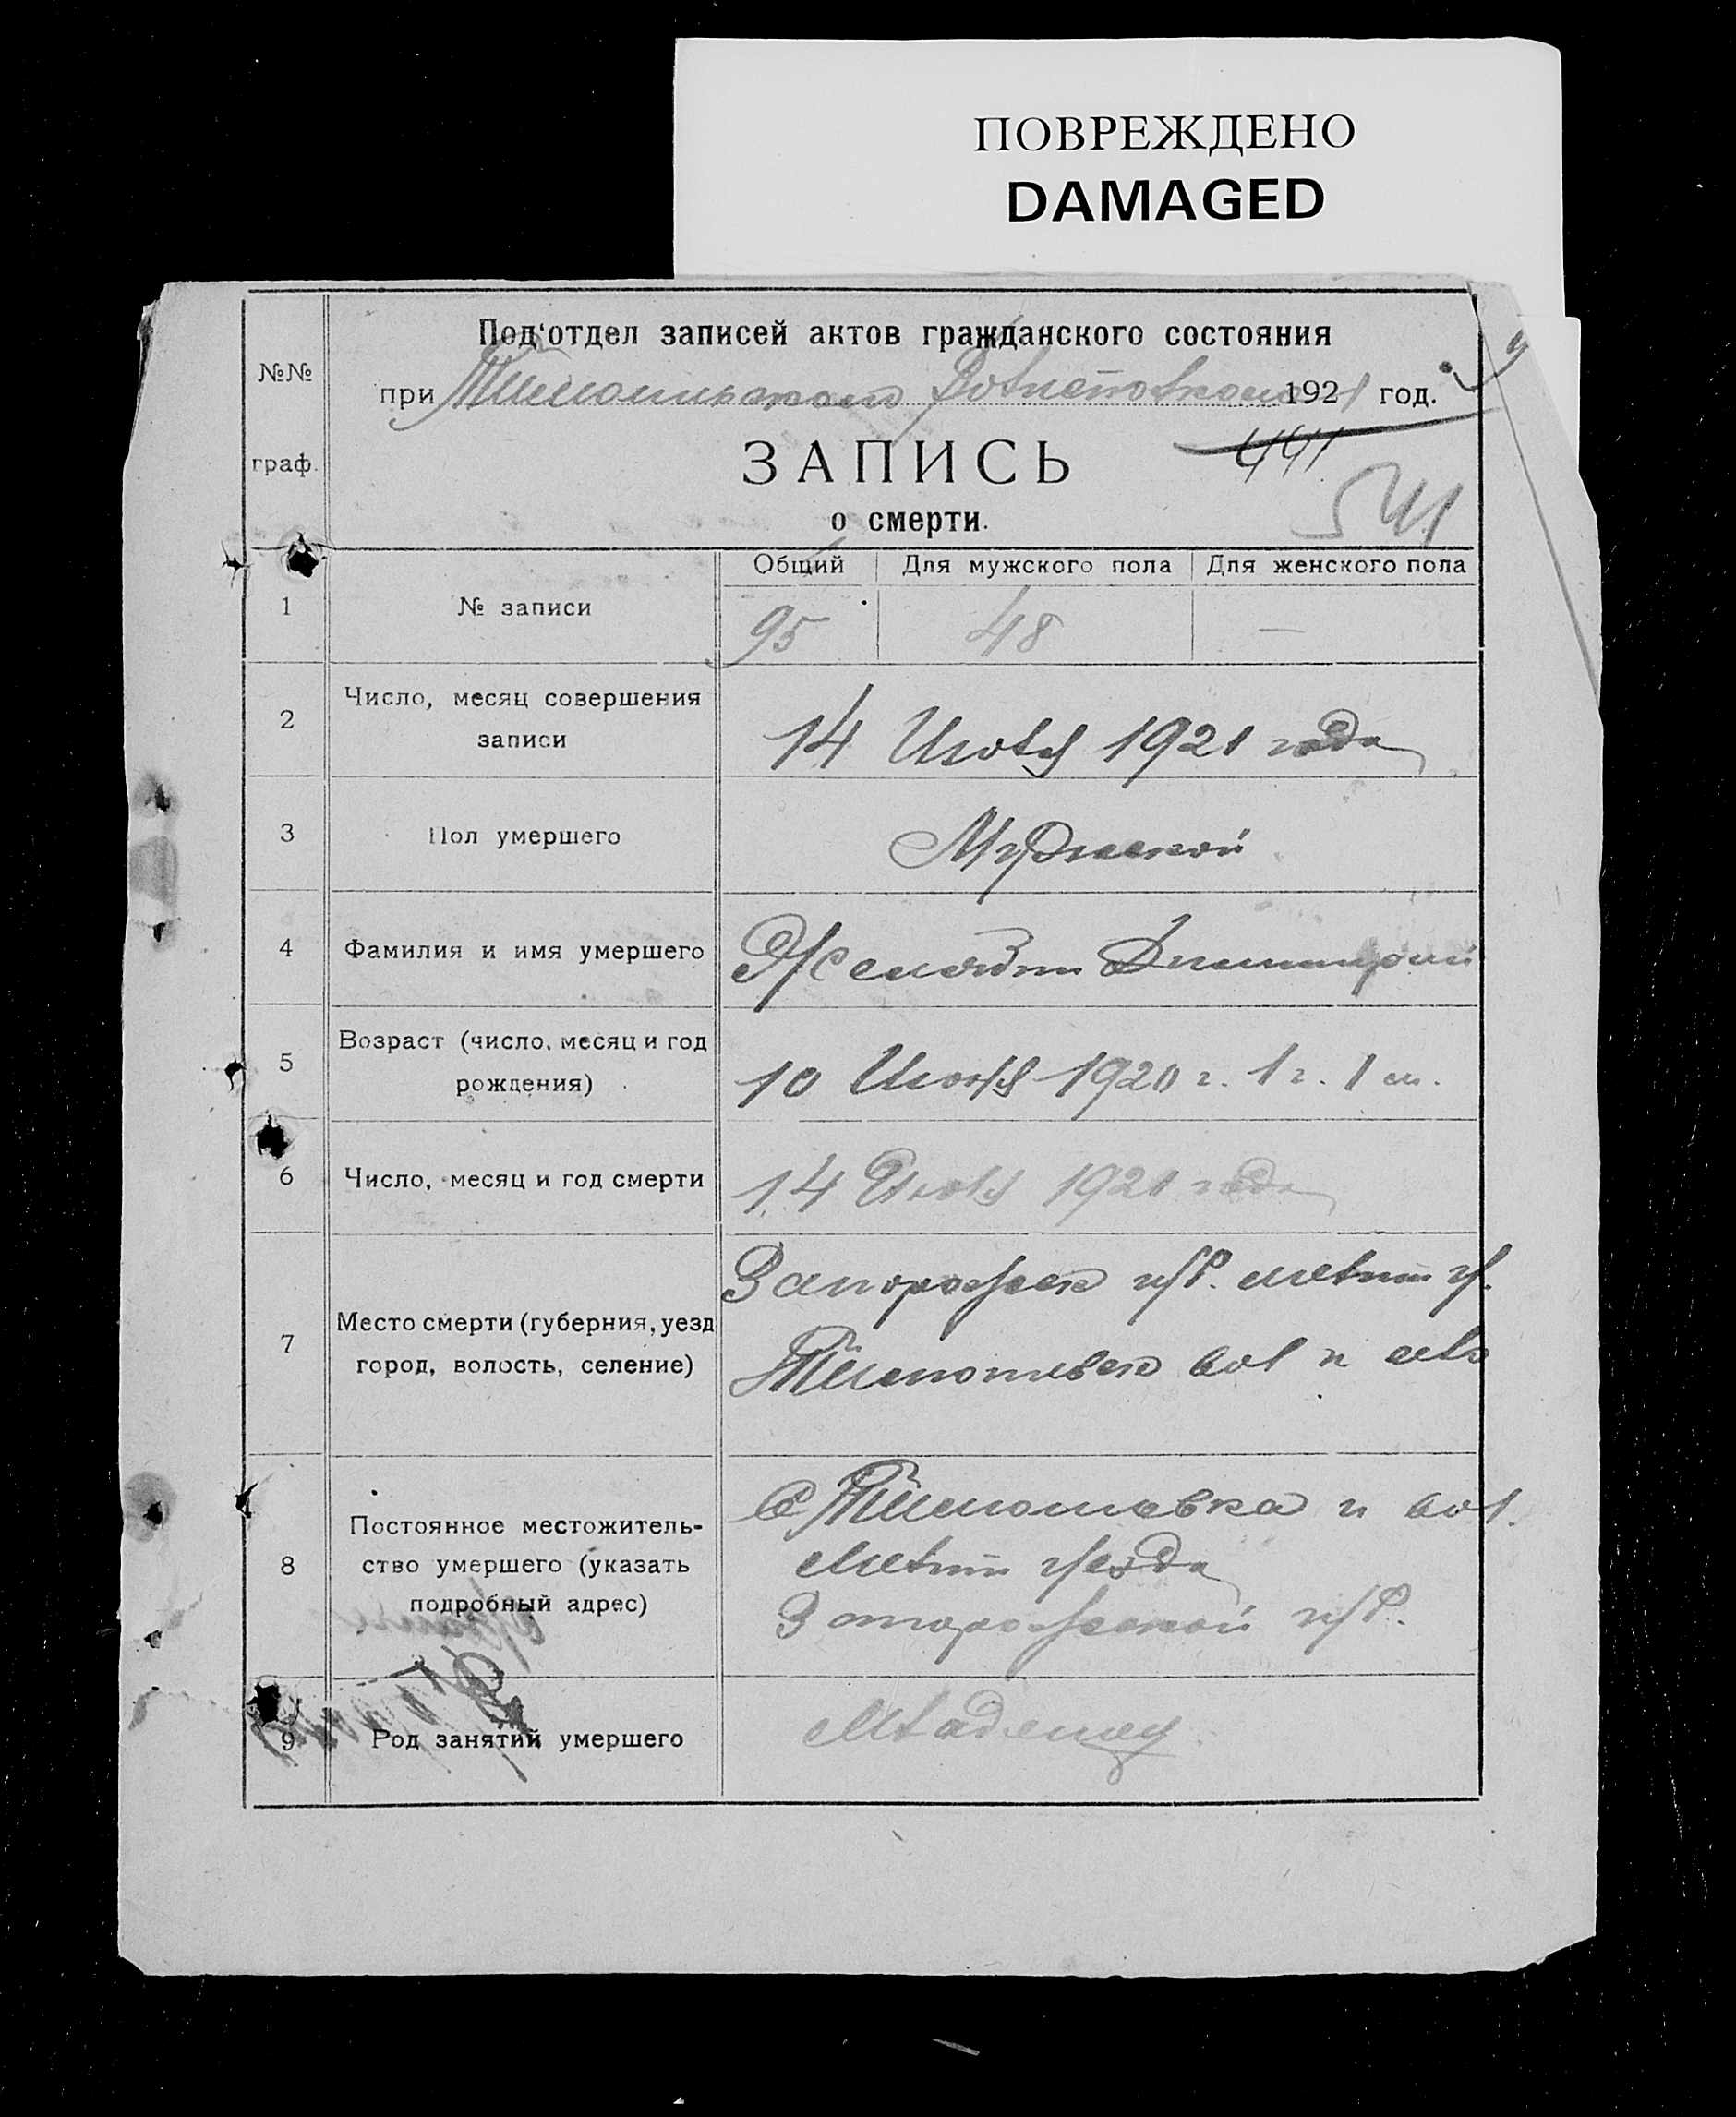 ПОВРЕЖДЕНО
DAMAGED
Под'отдел записей актов гражданского состояния
№№
при Тимошивском Волисполкоме 1921 год.
граф.
ЗАПИСЬ
441
541
о смерти.
Общий Для мужского пола Для женского пола
1 № записи 95 48 —
2 Число, месяц совершения
записи
14 Июля 1921 года
3 Пол умершего Мужеской
4 Фамилия и имя умершего Дмитрий
5 Возраст (число, месяц и год
рождения)
10 1920 г. 1 г. 1 м.
6 Число, месяц и год смерти 14 Июля 1921 года
7 Место смерти (губерния, уезд
город, волость, селение)
Запорожск губ. Мелит у.
Тимошивск вол и село
8 Постоянное местожитель-
ство умершего (указать
подробный адрес)
С Тимошовка и вол.
Мелит уезда
Запорожской губ.
9 Род занятий умершего Младенец